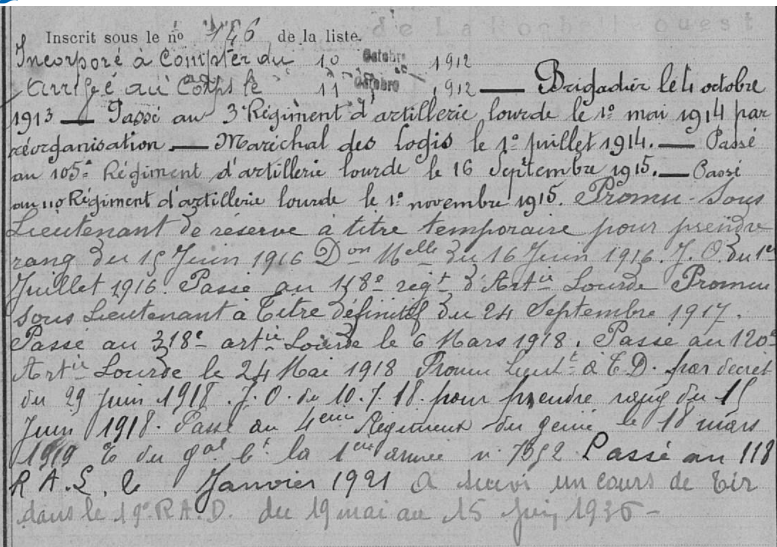 de La Rochelle ouest
Inscrit sous le no 146 de la liste.
Incorporé à Compter du 10 Octobre 1912
Arrivé au Corps le 11 Octobre 1912 — Brigadier le 4 octobre
1913 — Passé au 3e Régiment d'artillerie lourde le 1o mai 1914 par
réorganisation. — Maréchal des Logis le 1o juillet 1914. — Passé
au 105e Régiment d'artillerie lourde le 16 Septembre 1915. — Passé
au 110 Régiment d'artillerie lourde le 1o novembre 1915. Promu Sous
Lieutenant de réserve à titre temporaire pour prendre
rang du 15 Juin 1916 Don Melle du 16 Juin 1916. J.O. du 1er
Juillet 1916. Passé au 118e regt d'Artie Lourde Promu
sous Lieutenant à Titre définitif du 24 Septembre 1917.
Passé au 318e artie Lourde le 6 Mars 1918. Passé au 120e
Artie Lourde le 24 Mai 1918 Promu Lieutt à T.D. par décret
du 29 Juin 1918. J.O. du 10.7.18 pour prendre rang du 15
Juin 1918. Passé au 4eme Régiment du génie le 18 mars
1919 du gal la 1ere armée n. 7352 Passé au 118
R.A.L. le Janvier 1921 A suivi un cours de tir
dans le 19e R.A.D. du 19 mai au 15 juin 1936 -